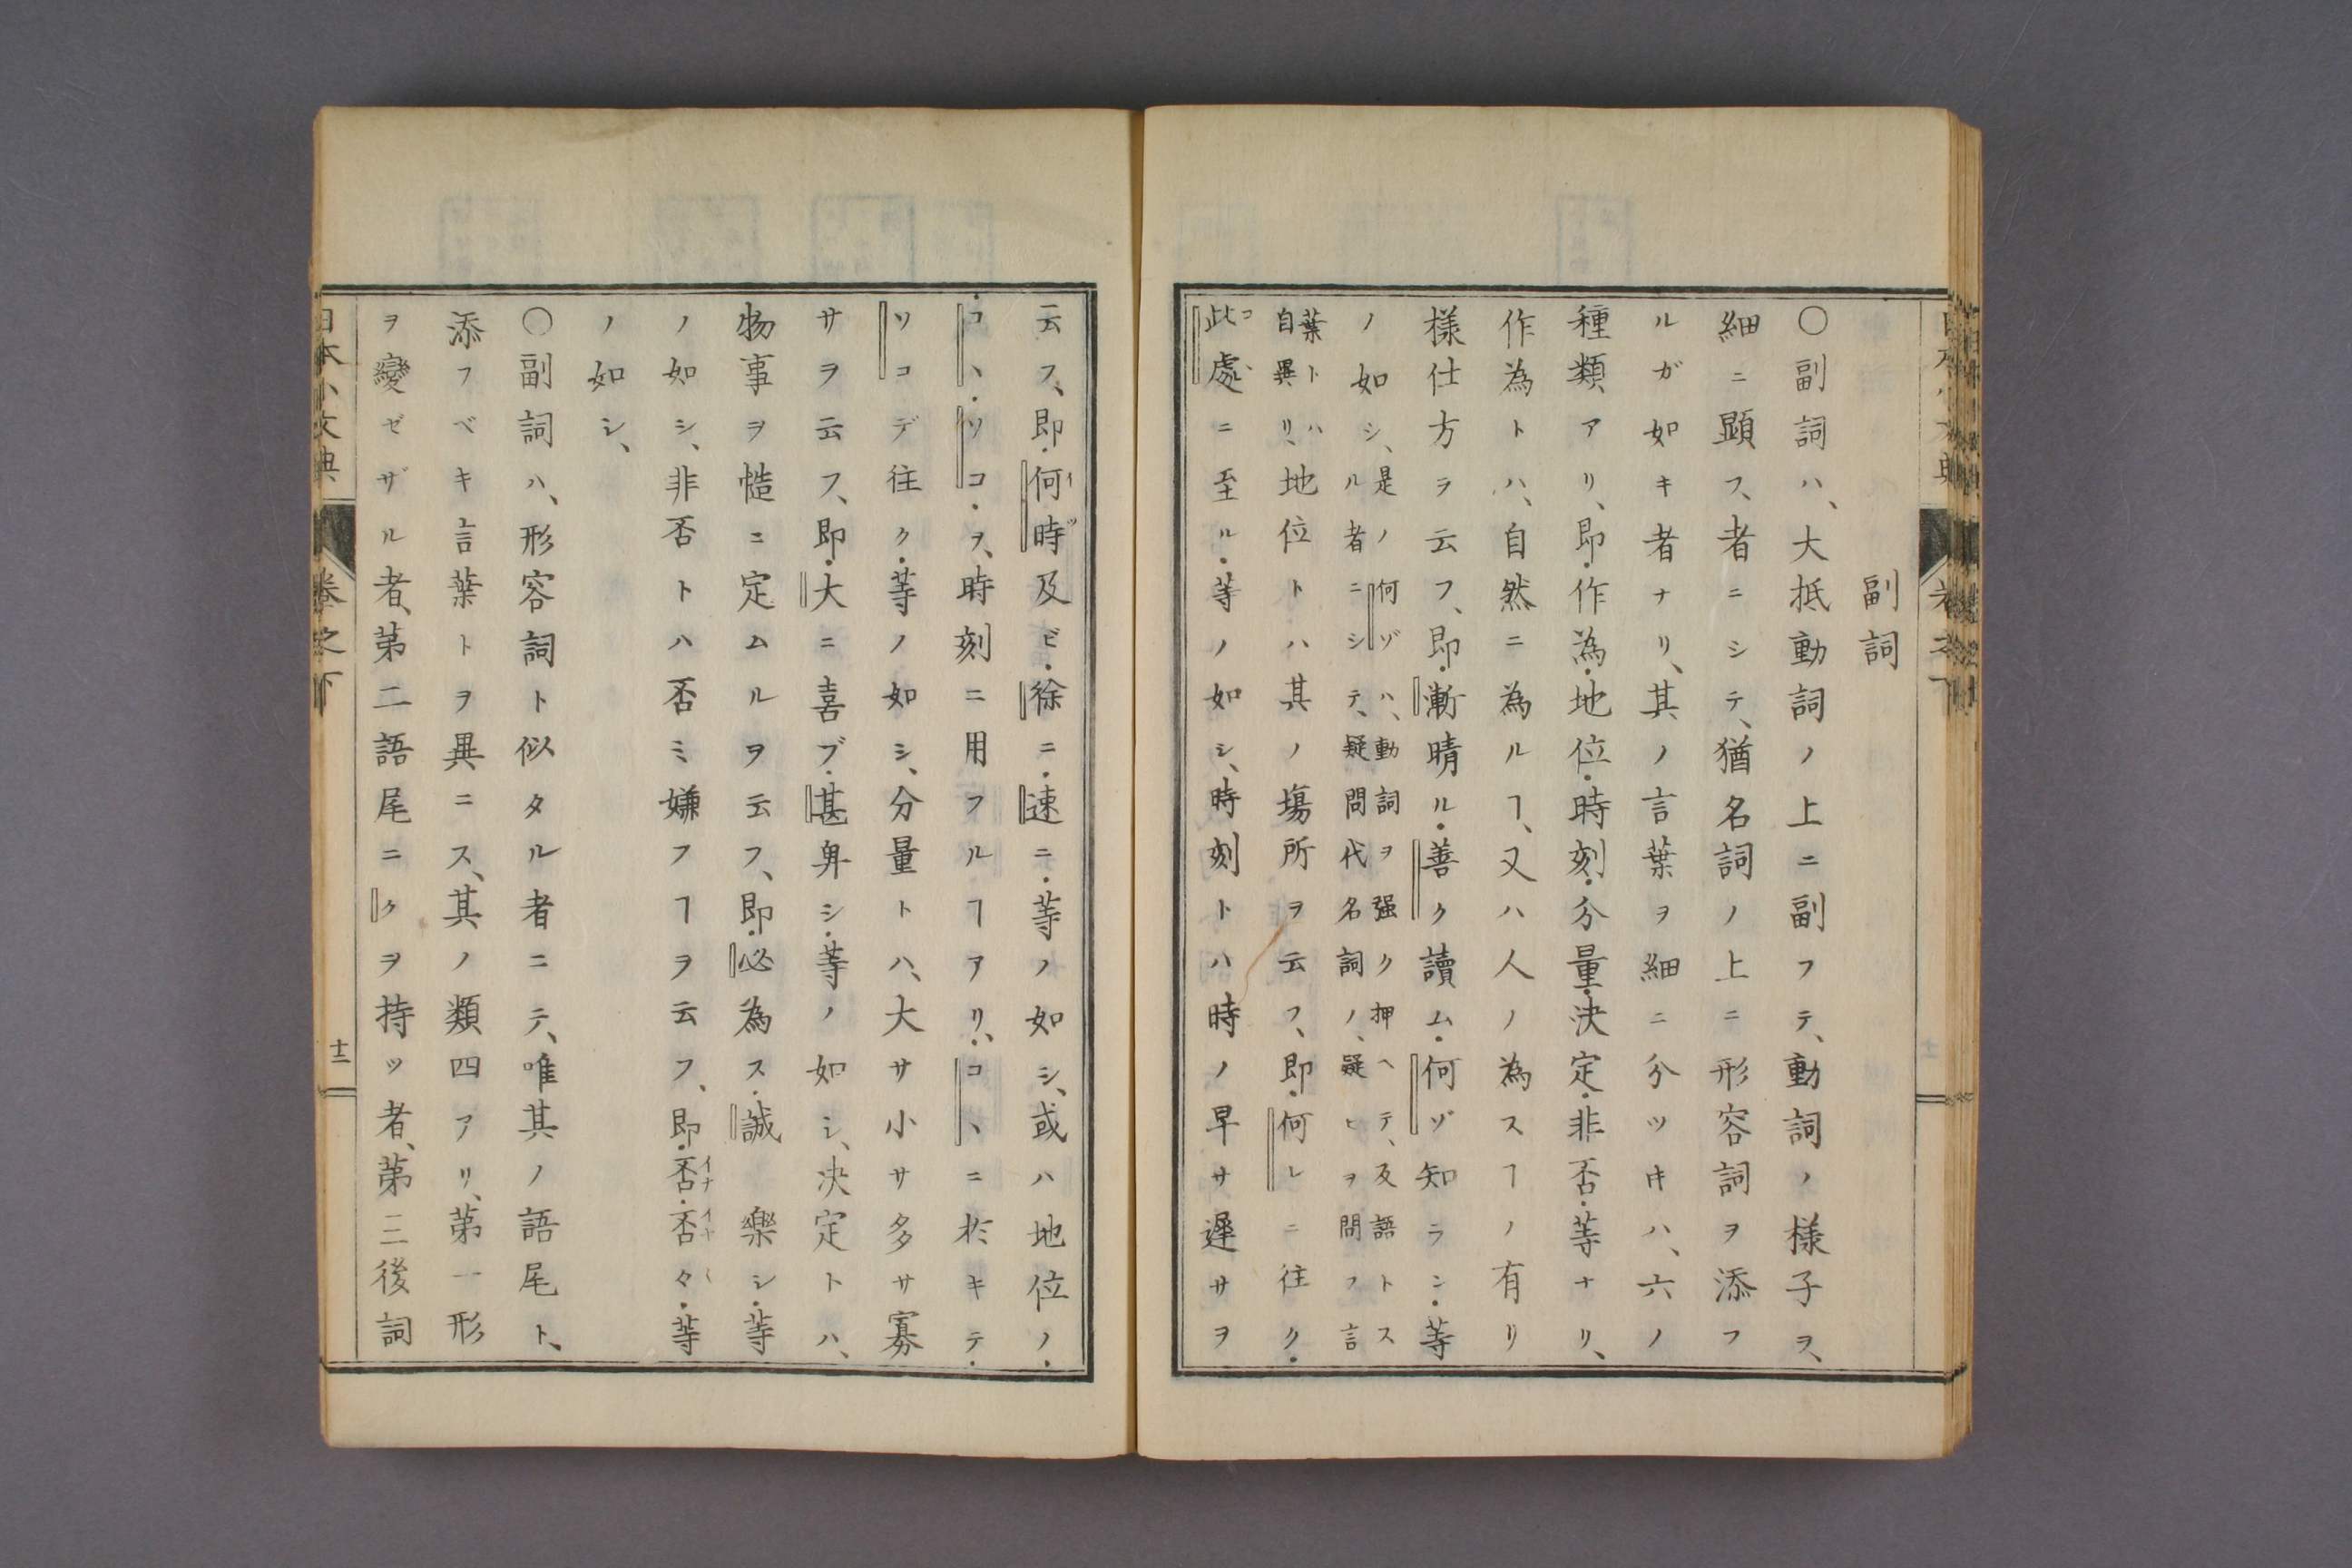 副詞
〇副詞ハ、大抵動詞ノ上ニ副フテ、動詞ノ様子ヲ、
細ニ顕フ、者ニシテ、猶名詞ノ上ニ形容詞ヲ添フ
ルガ如キ者ナリ、其ノ言葉ヲ細ニ分ツキハ、六ノ
種類アリ、即・作為・地位・時刻・分量・決定・非否・等ナリ、
作為トハ、自然ニ為ルヿ、又ハ人ノ為スヿノ有リ
様仕方ヲ云フ、即・漸晴ル・善ク讀ム・何ゾ知ラン・等
ノ如シ、是ノ何ゾハ、動詞ヲ强ク押ヘテ、反語トス
ル者ニシテ、疑問代名詞ノ、疑ヒヲ問フ言
葉トハ
自異リ、地位トハ其ノ塲所ヲ云フ、即・何レニ往ク・
此處ニ至ル・等ノ如シ、時刻トハ時ノ早サ遲サヲ
云フ、即・何時及ビ・徐ニ・速ニ・等ノ如シ、或ハ地位ノ・
コヽ・ソコ・ヲ、時刻ニ用フルヿアリ、・コヽニ於キテ・
ソコデ往ク・等ノ如シ、分量トハ、大サ小サ多サ寡
サヲ云フ、即・大ニ喜ブ・甚卑シ・等ノ如シ、決定トハ、
物事ヲ慥ニ定ムルヲ云フ、即・必為ス・誠樂シ・等
ノ如シ、非否トハ否ミ嫌フヿヲ云フ、即・否・否々・等
ノ如シ、
〇副詞ハ、形容詞ト似タル者ニテ、唯其ノ語尾ト、
添フベキ言葉トヲ異ニス、其ノ類四アリ、第一形
ヲ變ゼザル者、第二語尾ニクヲ持ツ者、第三後詞
日本小文典 卷之下 十二